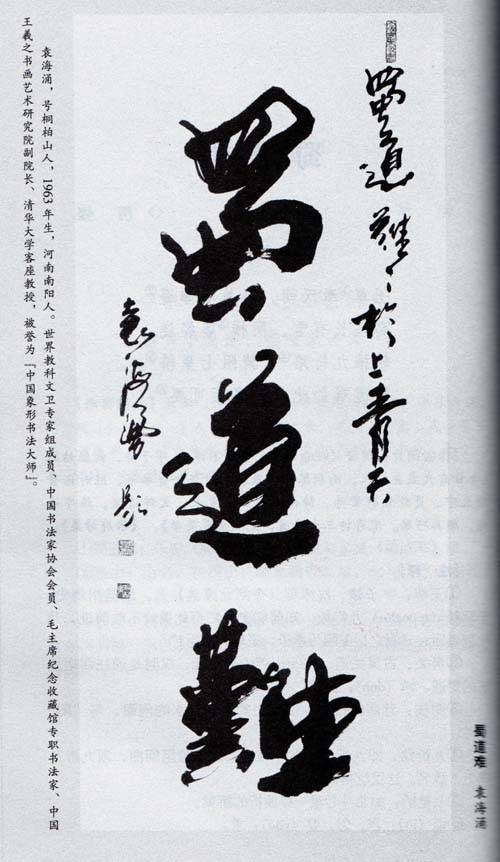 蜀道难 袁海涌
蜀道難々於上青天
蜀道難
袁海湧題
袁海涌，号桐柏山人，1963 年生，河南南阳人。世界教科文卫专家组成员、中国书法家协会会员、毛主席纪念收藏馆专职书法家、中国
王羲之书画艺术研究院副院长、清华大学客座教授，被誉为『中国象形书法大师』。